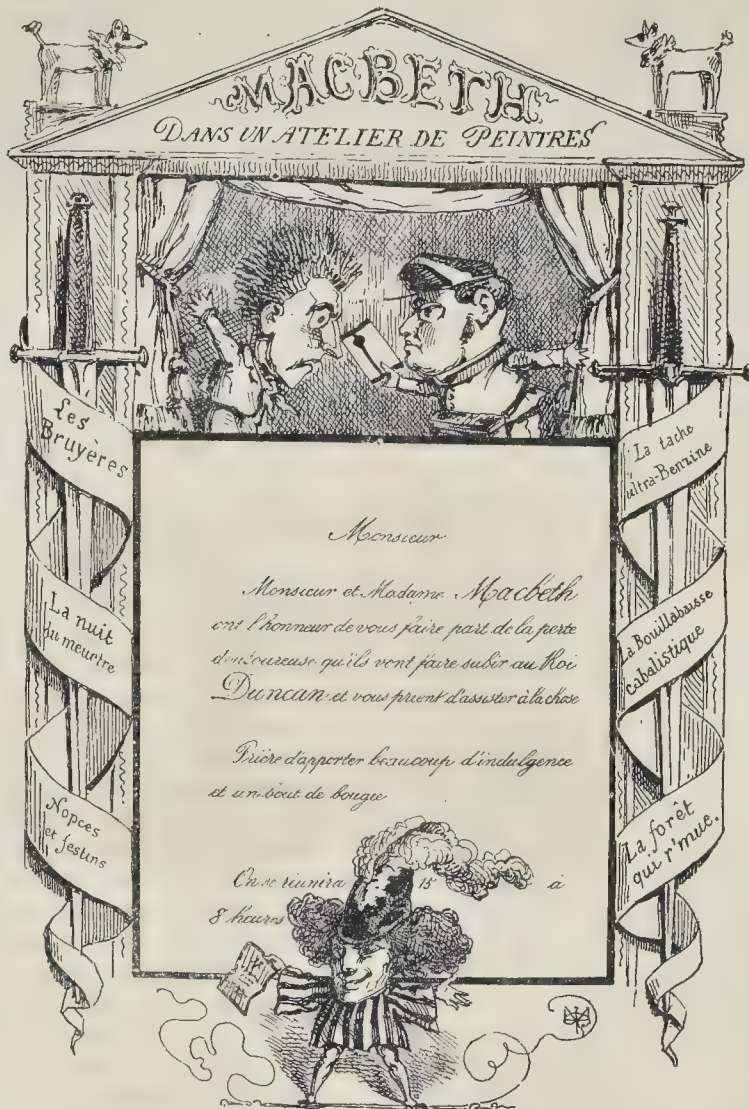 MACBETH
DANS UN ATELIER DE PEINTRES
Les
Bruyères
La nuit
du meurtre
Nopces
et festins
La tache
ultra-Benzine
La Bouillabaisse
cabalistique
La forêt
qui r'mue.
Monsieur
Monsieur et Madame Macbeth
ont l'honneur de vous faire part de la perte
douloureuse qu'ils vont faire subir au Roi
Duncan et vous prient d'assister à la chose
Prière d'apporter beaucoup d'indulgence
et un bout de bougie
On se réunira 15 à
8 heures